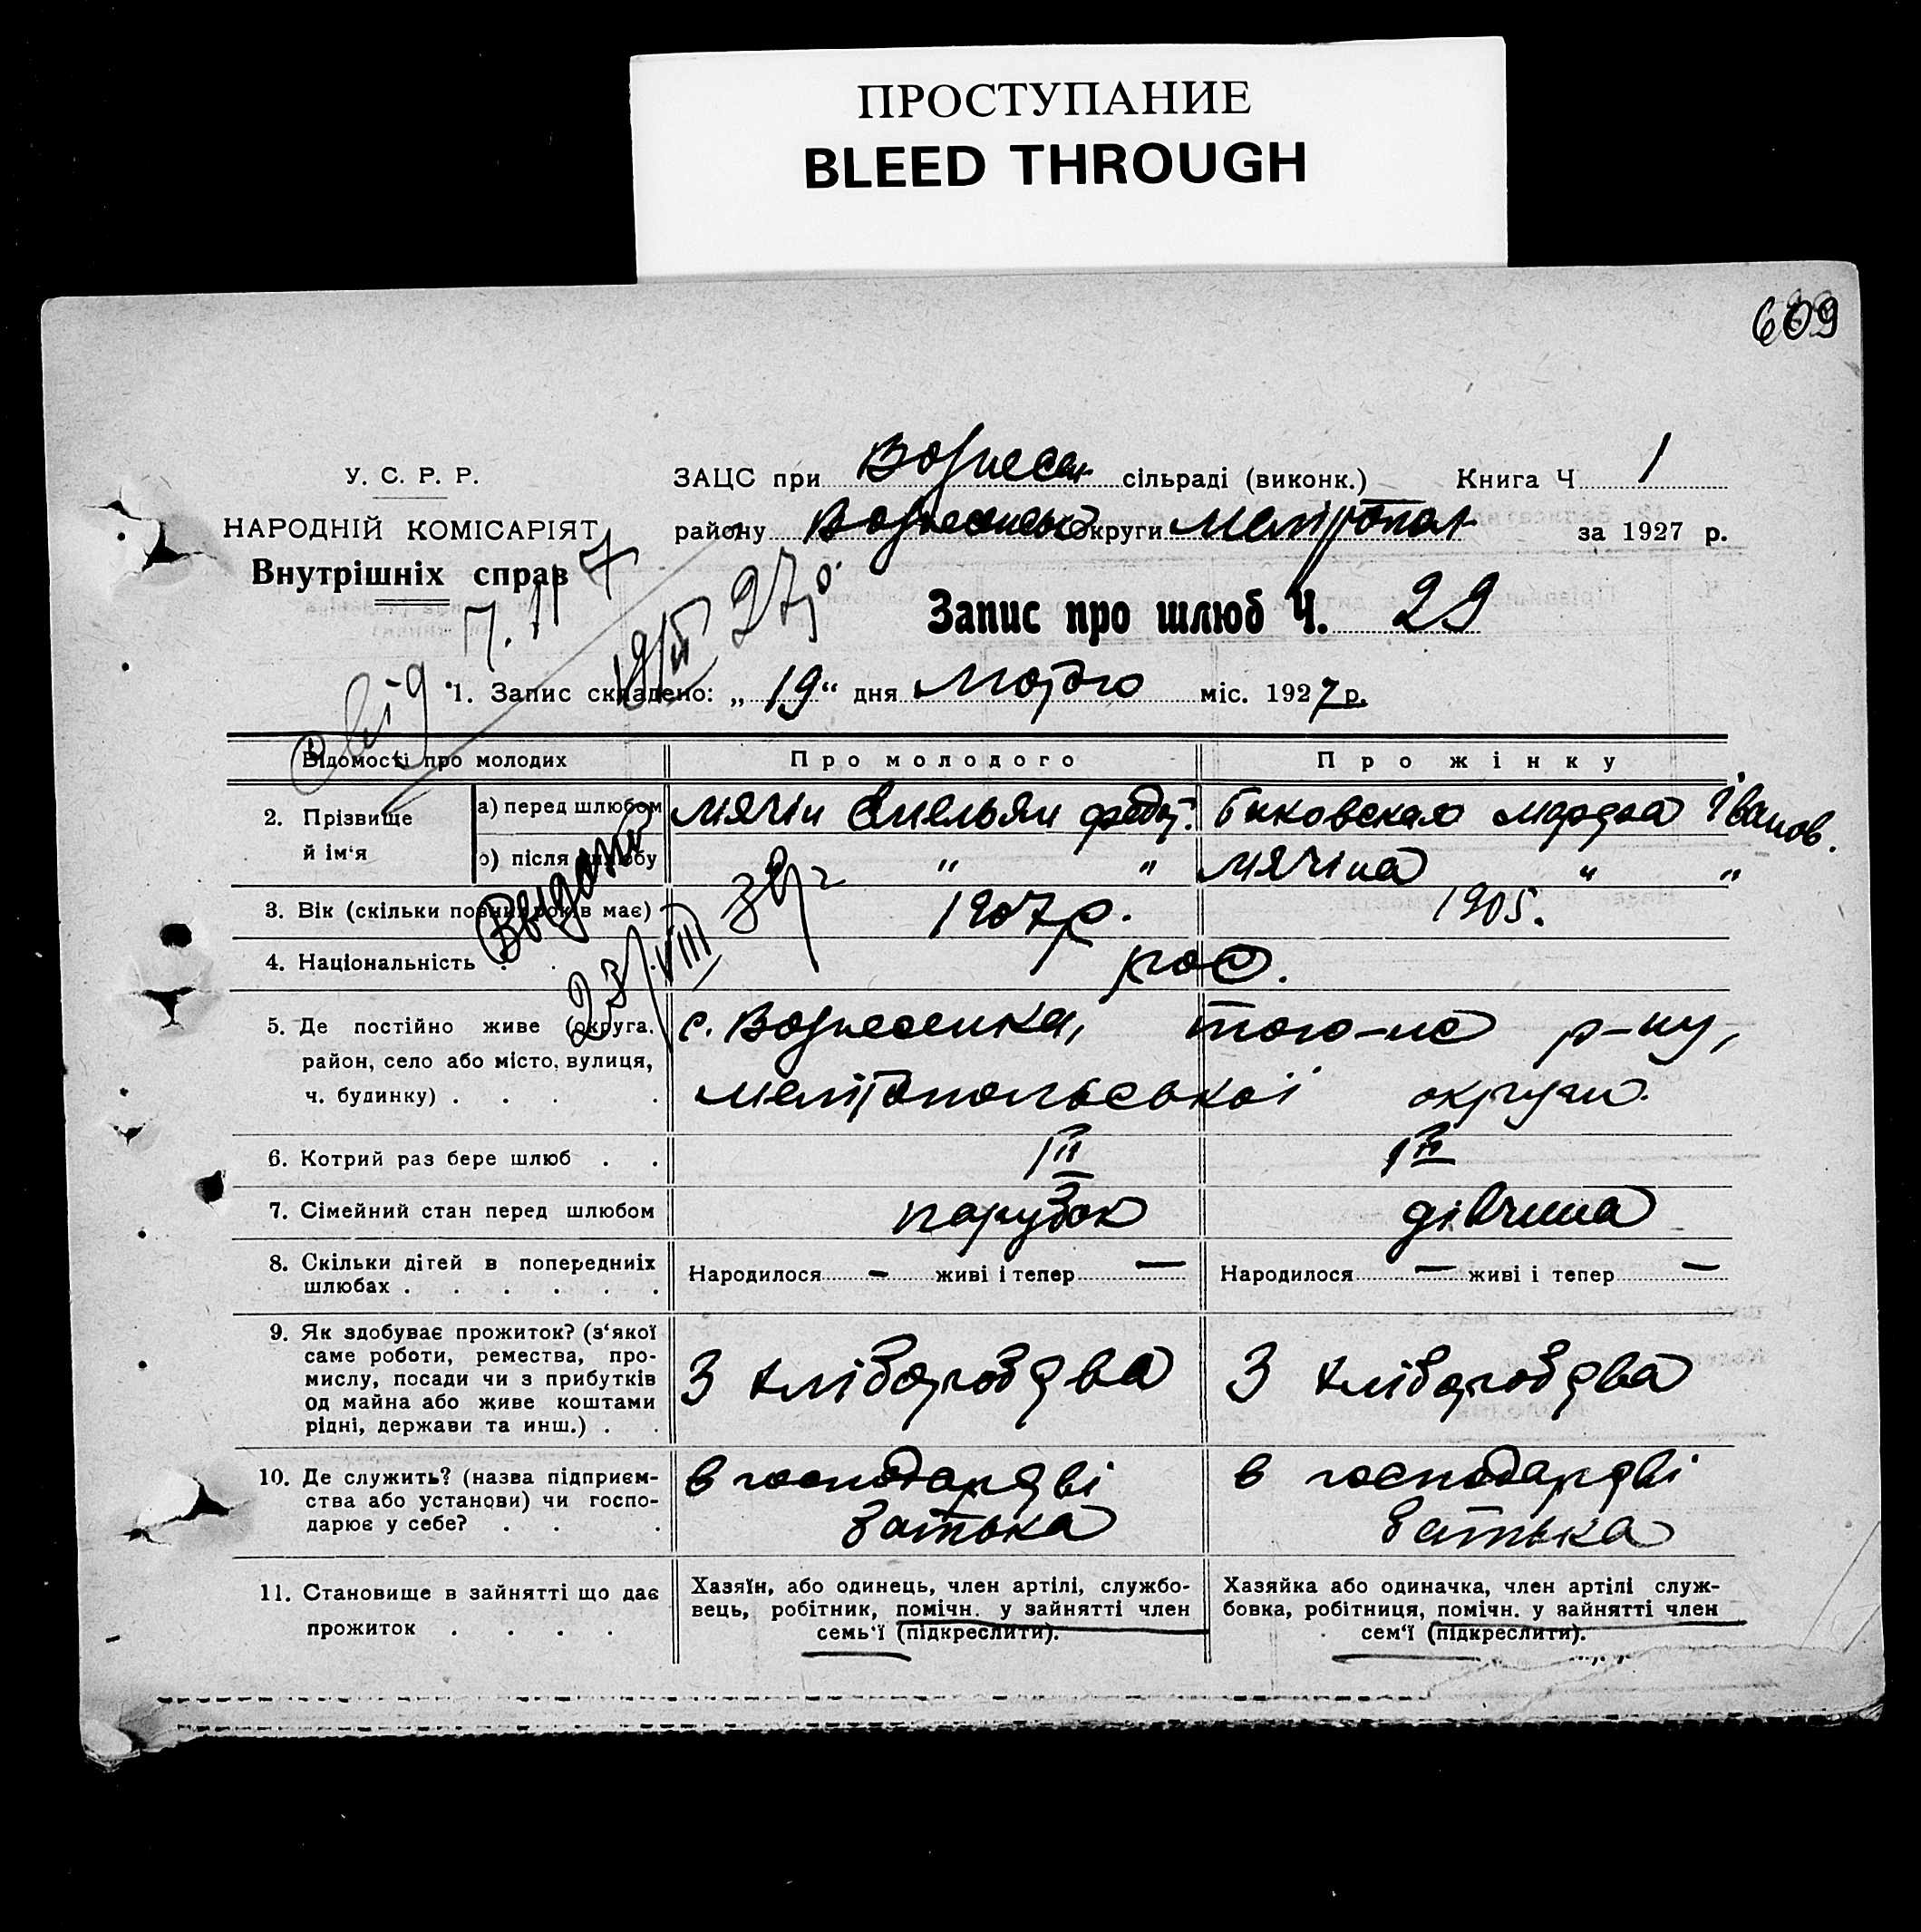 ПРОСТУПАНИЕ
BLEED THROUGH
609
У. С. Р. Р.
НАРОДНІЙ КОМІСАРІЯТ
Внутрішніх справ
ЗАЦС при Вознесен сільраді (виконк.) Книга Ч 1
району Вознесенськ округи Мелітопол за 1927 р.
Запис про шлюб Ч. 29
1. Запис складено: „ 19 “ дня Лютого міс. 1927 р.
19/II 27 р.
Відомості про молодих Про молодого Про жінку
2. Прізвище й ім‘я
а) перед шлюбом Мячін Емельян Федот. Биковская Марфа Іванов.
б) після шлюбу " " Мячіна " "
3. Вік (скільки повних років має) 1907 р. 1905.
Выдано
23/VIII 39 г
4. Національність рос.
5. Де постійно живе (округа, с. Вознесенка, того-же р-ну,
район, село або місто, вулиця,
ч. будинку) Мелітопольської округи.
6. Котрий раз бере шлюб І й І й
7. Сімейний стан перед шлюбом парубок дівчина
8. Скільки дітей в попередниіх Народилося — живі і тепер — Народилося — живі і тепер —
шлюбах
9. Як здобуває прожиток? (з‘якої
саме роботи, ремества, про-
мислу, посади чи з прибутків З хліборобства З хліборобства
од майна або живе коштами
рідні, держави та инш.)
10. Де служить? (назва підприєм- в господарстві в господарстві
ства або установи) чи госпо-
дарює у себе? батька батька
11. Становище в зайнятті що дає
прожиток
Хазяїн, або одинець, член артілі, службо-
вець, робітник, помічн. у зайнятті член
семь‘ї (підкреслити).
Хазяйка або одиначка, член артілі служ-
бовка, робітниця, помічн. у зайнятті член
сем‘ї (підкреслити).